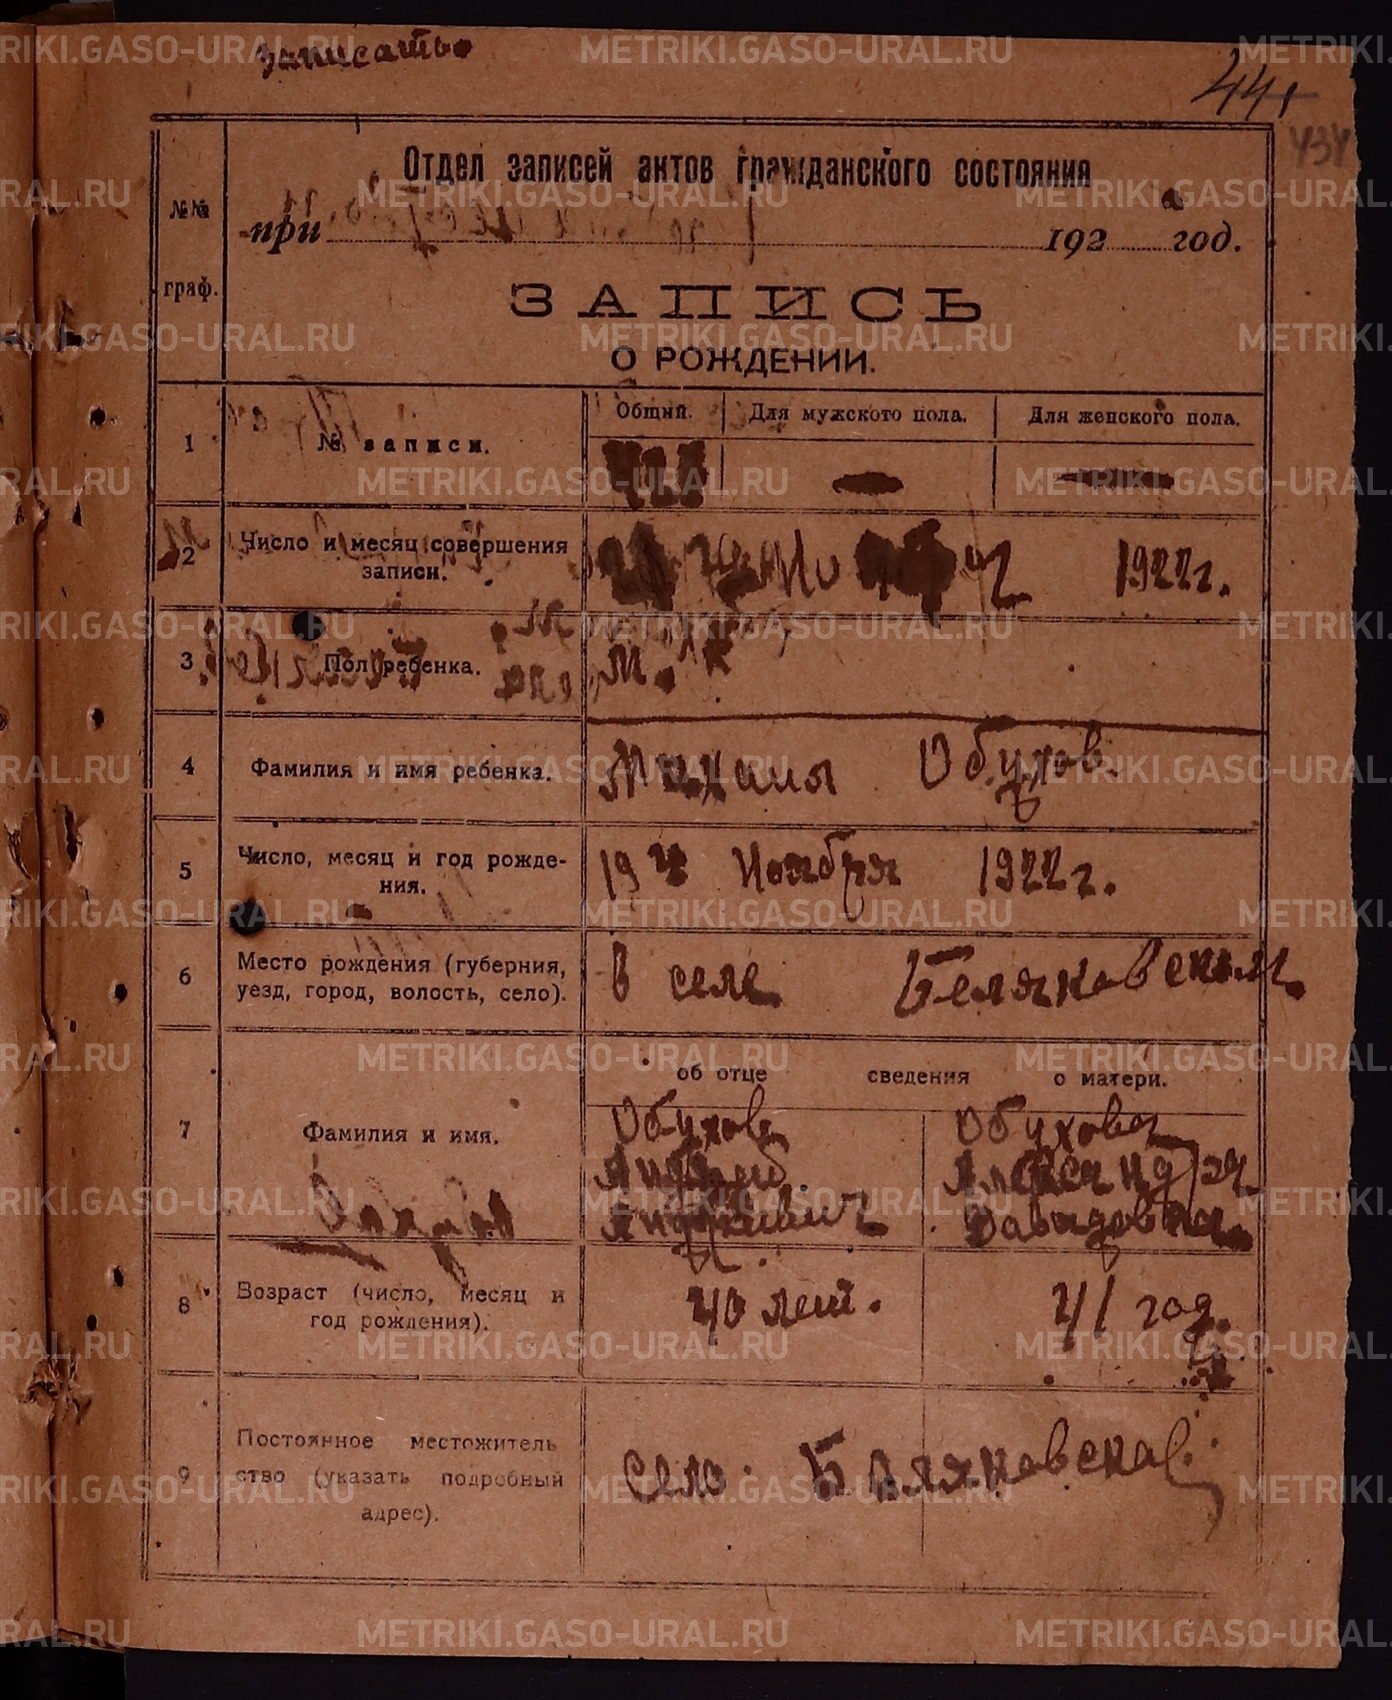 записать
441
434
Отдел записей актов гражданского состояния
№№
при 192 год.
граф.
ЗАПИСЬ
О РОЖДЕНИИ.
1 № записи. Общий. Для мужского пола. Для женского пола.
2 Число и месяц совершения
записи. 1922 г.
3 Пол ребенка. М.
4 Фамилия и имя ребенка. Михаил Обухов.
5 Число, месяц и год рожде-
ния. 19 Ноября 1922 г.
6 Место рождения (губерния,
уезд, город, волость, село). В селе Беляковском.
об отце сведения о матери.
7 Фамилия и имя.
Обухов Обухова
Андрей Александра
Андреевич Давыдовна.
8 Возраст (число, месяц и
год рождения). 40 лет. 41 год.
9 Постоянное местожитель
ство (указать подробный
адрес). село Беляковское
METRIKI.GASO-URAL.RU